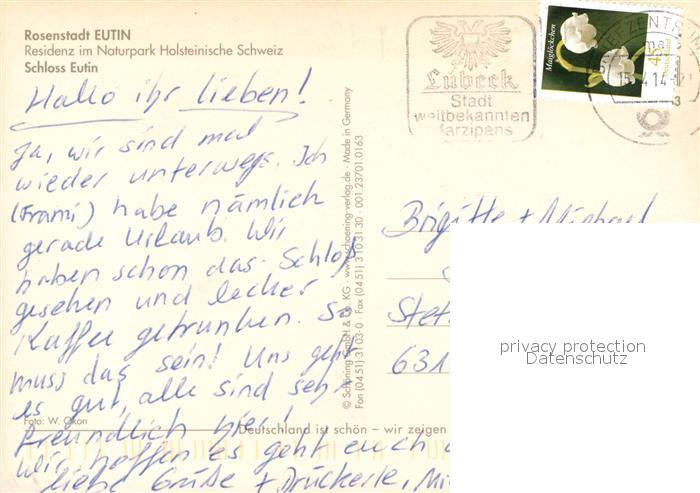 Rosenstadt EUTIN
Residenz im Naturpark Holsteinische Schweiz
Schloss Eutin
Hallo ihr lieben!
Ja, wir sind mal
wieder unterwegs. Ich
(Frami) habe nämlich
gerade Urlaub. Wir
haben schon das Schloß
gesehen und lecker
Kaffee getrunken. So
muss das sein! Uns geht
es gut, alle sind sehr
freundlich hier!
Wir hoffen es geht euch
liebe Grüße + Drückerle,
Foto: W. Okon
Deutschland ist schön – wir zeigen
© Schöning GmbH & Co. KG · www.schoening-verlag.de · Made in Germany
Fon (04 51) 3 10 3-0 · Fax (04 51) 3 10 31 30 · 001.23701.0163
Lübeck
Stadt
weltbekannten
Marzipans
Maiglöckchen
45
Deutschland
BRIEFZENTRUM
Brigitte + Michael
Stet
631
privacy protection
Datenschutz